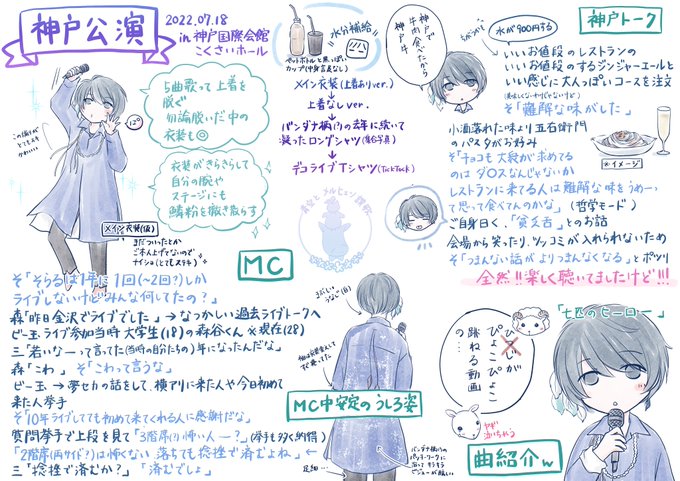 神戸公演
2022.07.18
in 神戸国際会館
こくさいホール
水分補給
ペットボトルと黒っぽい
カップ(中身言及なし)
神戸牛
牛肉食べたら
神戸トーク
水が900円する
いいお値段のレストランの
いいお値段のするジンジャーエールと
いい感じに大人っぽいコースを注文
そ「難解な味がした」
小洒落た味より五右衛門
のパスタがお好み
※イメージ
そ「チョコも大衆が求めてる
のは DARSなんじゃないか
レストランに来てる人は難解な味をうめーっ
て思って食べてんのかな」(哲学モード)
ご自身曰く、「貧乏舌」とのお話
会場から笑ったり、ツッコミが入れられないため
そ「つまんない話がよりつまんなくなる」とポツリ
全然!!楽しく聴いてましたけど!!!
5曲歌って上着を
脱ぐ
勿論脱いだ中の
衣装も◎
衣装がきらきらして
自分の腕や
ステージにも
鱗粉を撒き散らす
メイン衣装(仮)
メイン衣装(上着ありver.)
上着なしver.
バンダナ柄(?)の去年に続いて
凝ったロングシャツ
デコライブTシャツ(TickTack)
MC
そ「そらるは1年に1回(〜2回?)しか
ライブしないけどみんな何してたの?」
森「昨日金沢でライブでした」→なつかしい過去ライブトークへ
ビー玉ライブ参加当時 大学生(18)の森谷くん ※現在(28)
三「若いなーって言ってた(当時の自分たちの)年になったんだな」
森「こわ」 そ「こわって言うな」
ビー玉→夢セカの話をして、横アリに来た人や今日初めて
来た人挙手
そ「10年ライブしてても初めて来てくれる人に感謝だな」
質問挙手で上段を見て「3階席(?)怖い人ー?」(挙手も多く納得)
「2階席(両サイド?)は怖くない 落ちても捻挫で済むよね」
三「捻挫で済むか?」 「済むでしょ」
MC中安定のうしろ姿
「七匹のヒーロー」
ひつじが
ぴょこぴょこ
跳ねる動画
の…
ヤギ
曲紹介w